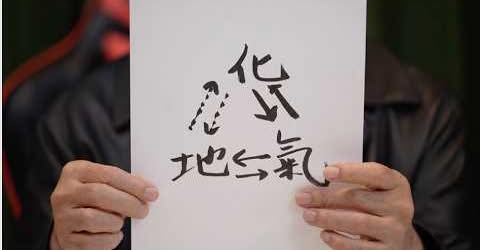 化
地⇆氣